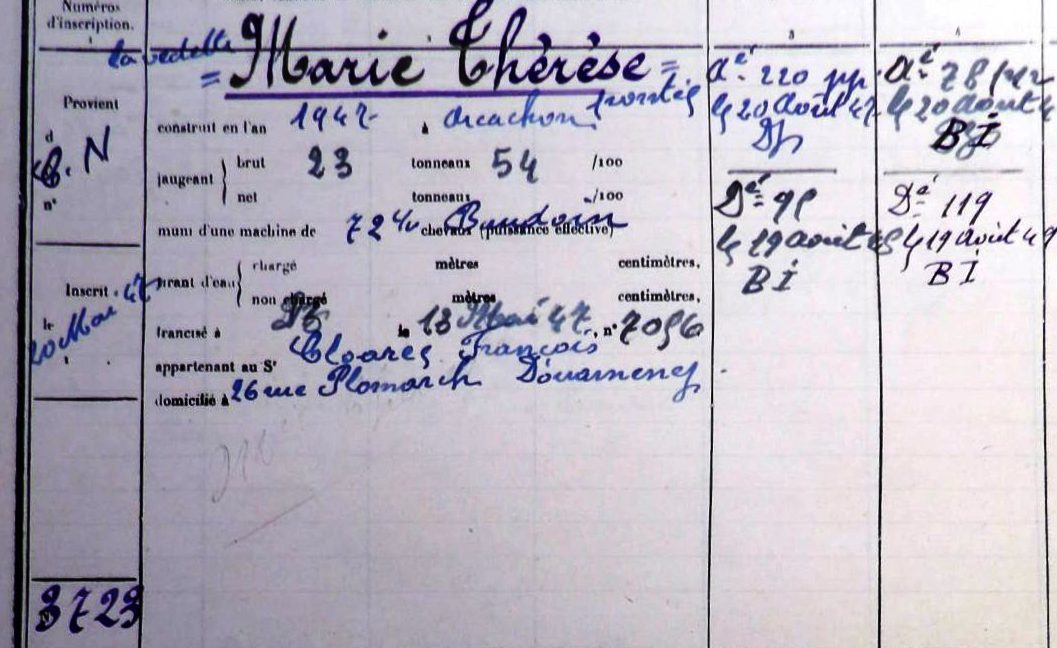 Numéros
d'inscription.
1
3
4
la vedette
= Marie Thérèse =
pontée
construit en l'an 1947 à Arcachon
Provient
d
C. N
n°
jaugeant brut 23 tonneaux 54 /100
net tonneaux /100
muni d'une machine de 72 cv Baudoin chevaux (puissance effective)
tirant d'eau chargé mètres centimètres,
non chargé mètres centimètres,
Inscrit 47
le
20 Mai
francisé à Dz le 13 Mai 47, n° 7056
appartenant au Sr Cloarec François
domicilié à 26 rue Plomarch Douarnenez
3723
Aé 220
le 20 août 47
Dz
Dé 98
le 19 août
BI
Aé 78
le 20 août 4
BI
Dé 119
le 19 août 49
BI